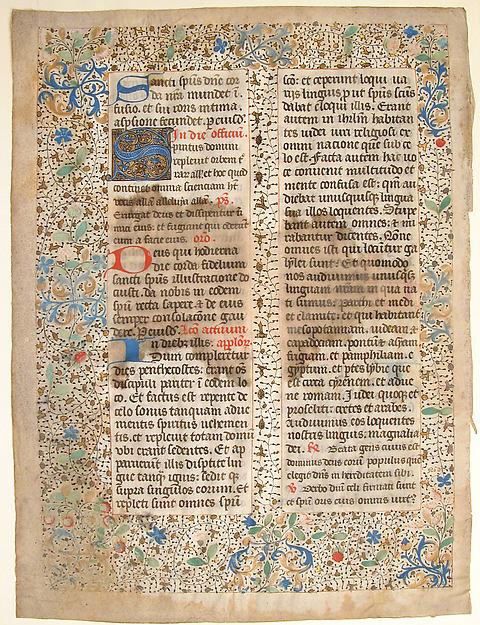 Sancti spūs dñe cor
da nr̄a mundet ī
fusio. et sui roris intima
aspsione fecundet. p eiusd̄.
In die officiū.
Spiritus domini
repleuit orbem t̄
rarᷓ all'et hoc quod
continet omnia scienciam hȝ
vocis all'a alleluia all'a. ps.
Exurgat deus et dissipentur ī
mici eius. et fugiant qui oderūt
eum a facie eius. oro.
Deus qui hodierna
die corda fidelium
sancti spūs illustracione do
cuisti. da nobis in eodem
spū recta sapere et de eius
semper consolacōne gau
dere. P eiusd̄. Lcō actuum
In diebȝ illis. applōr̄
Dum complerētur
dies penthecostes. erant oēs
discipuli pariter ī eodem lo
co. Et factus est repente de
celo sonus tanquam adue
nientis spiritus vehemen
tis. et repleuit totam domū
vbi erant sedentes. Et ap
paruerūt illis disptite lin
gue tanqᷓ ignis. sedit qȝ
supra singulos eorum. et
repleti sunt omnes spū
scō. et ceperunt loqui ua
rijs linguis put spūs scūs
dabat eloqui illis. Erant
autem in ihrl̄m habitan
tes iudei viri religiosi ex
omni nacione que sub ce
lo est. Facta autem hac uo
ce conuenit multitudo et
mente confusa est: qm̄ au
diebat unusquisqȝ lingua
sua illos loquentes. Stupe
bant autem omnes: et mi
rabantur dicentes. Nōne
omnes isti qui locūtur ga
lylei sunt. Et quomodo
nos audiuimus unusqȝ
linguam nr̄am in qua na
ti sumus. Parthi et medi
et elamite. et qui habitant
mesopotaniam. iudeam et
capadociam. pontū et asyam
frigiam. et pamphiliam. e
gyptum. et ptes lybie que
est circa cyrenem. et adue
ne romani. Iudei quoqȝ et
proseliti. cretes et arabes.
audiuimus eos loquentes
nostris linguis. magnalia
dei. ℟. Beata gens cuius est
dominus deus eorū populus quē
elegit dn̄s in hereditatem sibi.
℣ Verbo dn̄i celi firmati sunt
et spū oris eius omnis uirtȝ